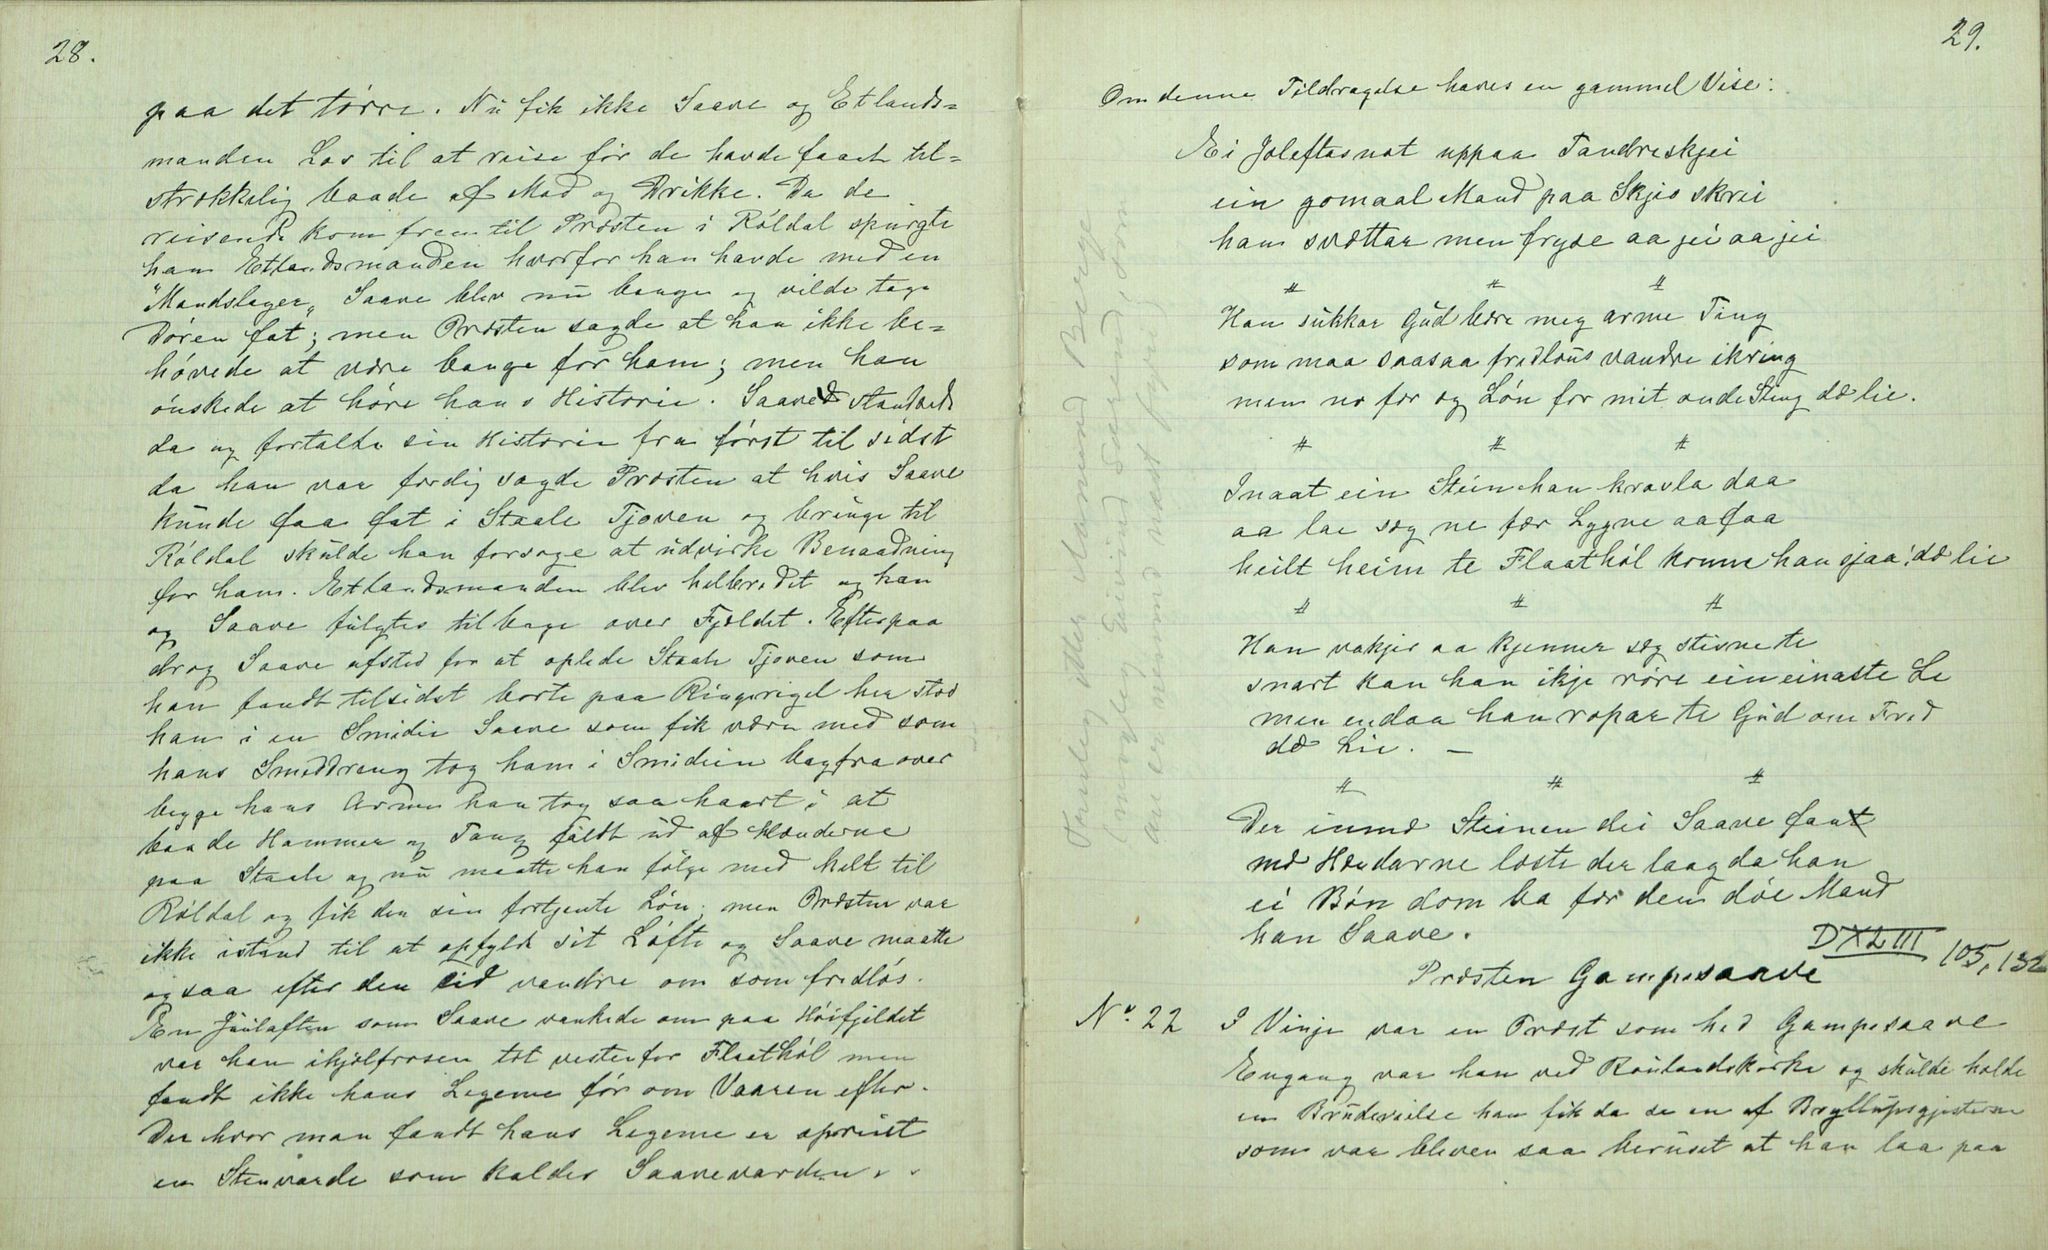 28.
paa det tørre. Nu fik ikke Saave og Etlands=
manden Lov til at reise før de havde faaet til=
strækkelig baade af Mad og Drikke. Da de
reisende kom frem til Præsten i Røldal spurgte
han Etlandsmanden hvorfor han havde med en
"Mandslager" Saave blev nu bange og vilde tage
Døren fat; men Præsten sagde at han ikke be=
høvede at være bange for ham; men han
ønskede at høre hans Historie. Saave standsede
da og fortalte sin Historie fra først til sidst
da han var færdig sagde Præsten at hvis Saave
kunde faa fat i Staale Tjoven og bringe til
Røldal skulde han forsøge at udvirke Benaadning
for ham. Etlandsmanden blev helbredet og han
og Saave fulgtes tilbage over Fjeldet. Efterpaa
drog Saave afsted for at oplede Staale Tjoven som
han fandt tilsidst borte paa Ringerige her stod
han i en Smidie Saave som fik være med som
hans Smeddreng tog ham i Smidien bagfra over
begge hans Arme han tog saa haart i at
baade Hammer og Tang faldt ud af Hænderne
paa Staale og nu maatte han følge med helt til
Røldal og fik den sin fortjente Løn; men Præsten var
ikke istand til at opfylde sit Løfte og Saave maatte
ogsaa efter den tid vandre om som fredløs.
En Juulaften som Saave vankede om paa Høifjeldet
var han ihjelfrosen tæt vestenfor Flaathøl men
fandt ikke hans Legeme før om Vaaren efter.
Der hvor man fandt hans Legeme er opreist
en Stenvarde som kaldes Saavevarden.
29.
Om denne Tildragelse haves en gammel Vise:
Ei Joleftasnat uppaa Tandreskjei
ein gomaal Mand paa Skjes skrei
han svættar men fryse aa jei aa jei
# # #
Han sukkar Gud bære meg arme Ting
som maa saasaa fredløus vandre ikring
men no fær eg Løn for mit onde Sting dæ lie.
# # #
Inaat ein Stein han kravla daa
aa lae sæg ne fær Lygne aa faa
heilt heim te Flaathøl konne han sjaa! dæ lie
# # #
Han vakjer aa kjenner sæg stivne te
snart kan han ikje røre ein einaste Le
men endaa han ropar te Gud om Fred
dæ Lie. —
# # #
Der inmæ Steinen dei Saave fant
mæ Hændarne læste der laag da han
ei Bøn dom ba før den døe Mand
han Saave.
DXLIII 105, 132
Præsten Gampesaave
No. 22 I Vinje var en Præst som hed Gampesaave
Engang var han ved Raulandskirke og skulde holde
en Brudevielse han fik da se en af Bryllupsgjesterne
som var bleven saa beruset at han laa paa